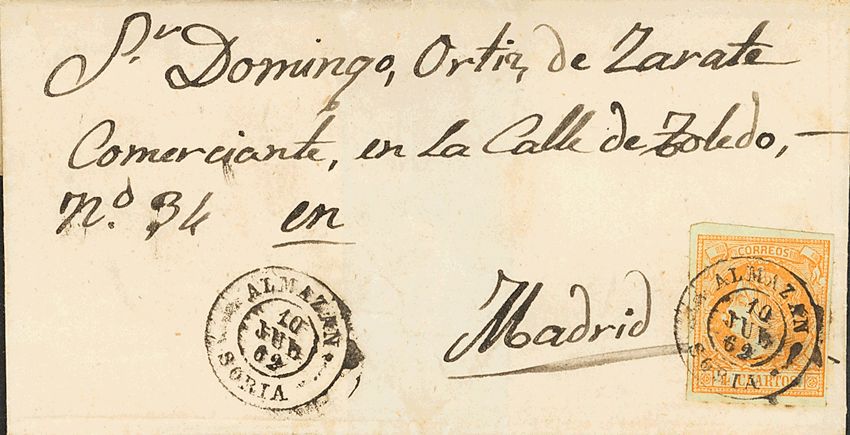 Sr. Domingo, Ortiz, de Zarate
Comerciante, en La Calle de Toledo,-
No. 34 en
Madrid
ALMAZAN
10
JUL
62
SORIA
CORREOS
ALMAZAN
10
JUL
62
SORIA
4 CUARTOS